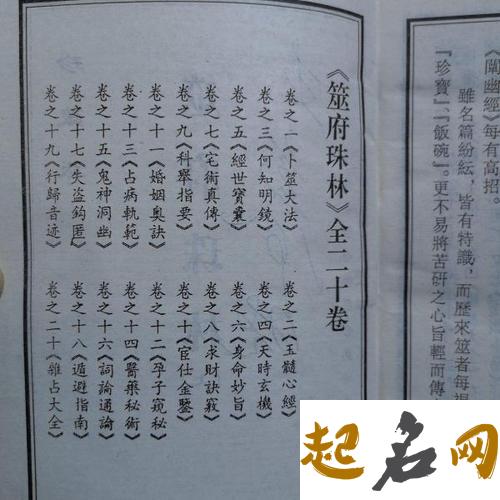 《闡幽經》每有高招。
雖名篇紛紜，皆有特識，而歷來筮者每視
『珍寶』、『飯碗』。更不易將苦研之心旨輕而傳
《筮府珠林》全二十卷
卷之一《卜筮大法》 卷之二《玉髓心經》
卷之三《何知明鏡》 卷之四《天時玄機》
卷之五《經世寶囊》 卷之六《身命妙旨》
卷之七《宅術真傳》 卷之八《求財訣竅》
卷之九《科舉指要》 卷之十《宦仕金鑒》
卷之十一《婚姻奧訣》 卷之十二《孕子窺秘》
卷之十三《占病軌範》 卷之十四《醫藥秘術》
卷之十五《鬼神洞幽》 卷之十六《詞論通論》
卷之十七《失盜鈎匿》 卷之十八《遁避指南》
卷之十九《行歸音迹》 卷之二十《雜占大全》
起名网